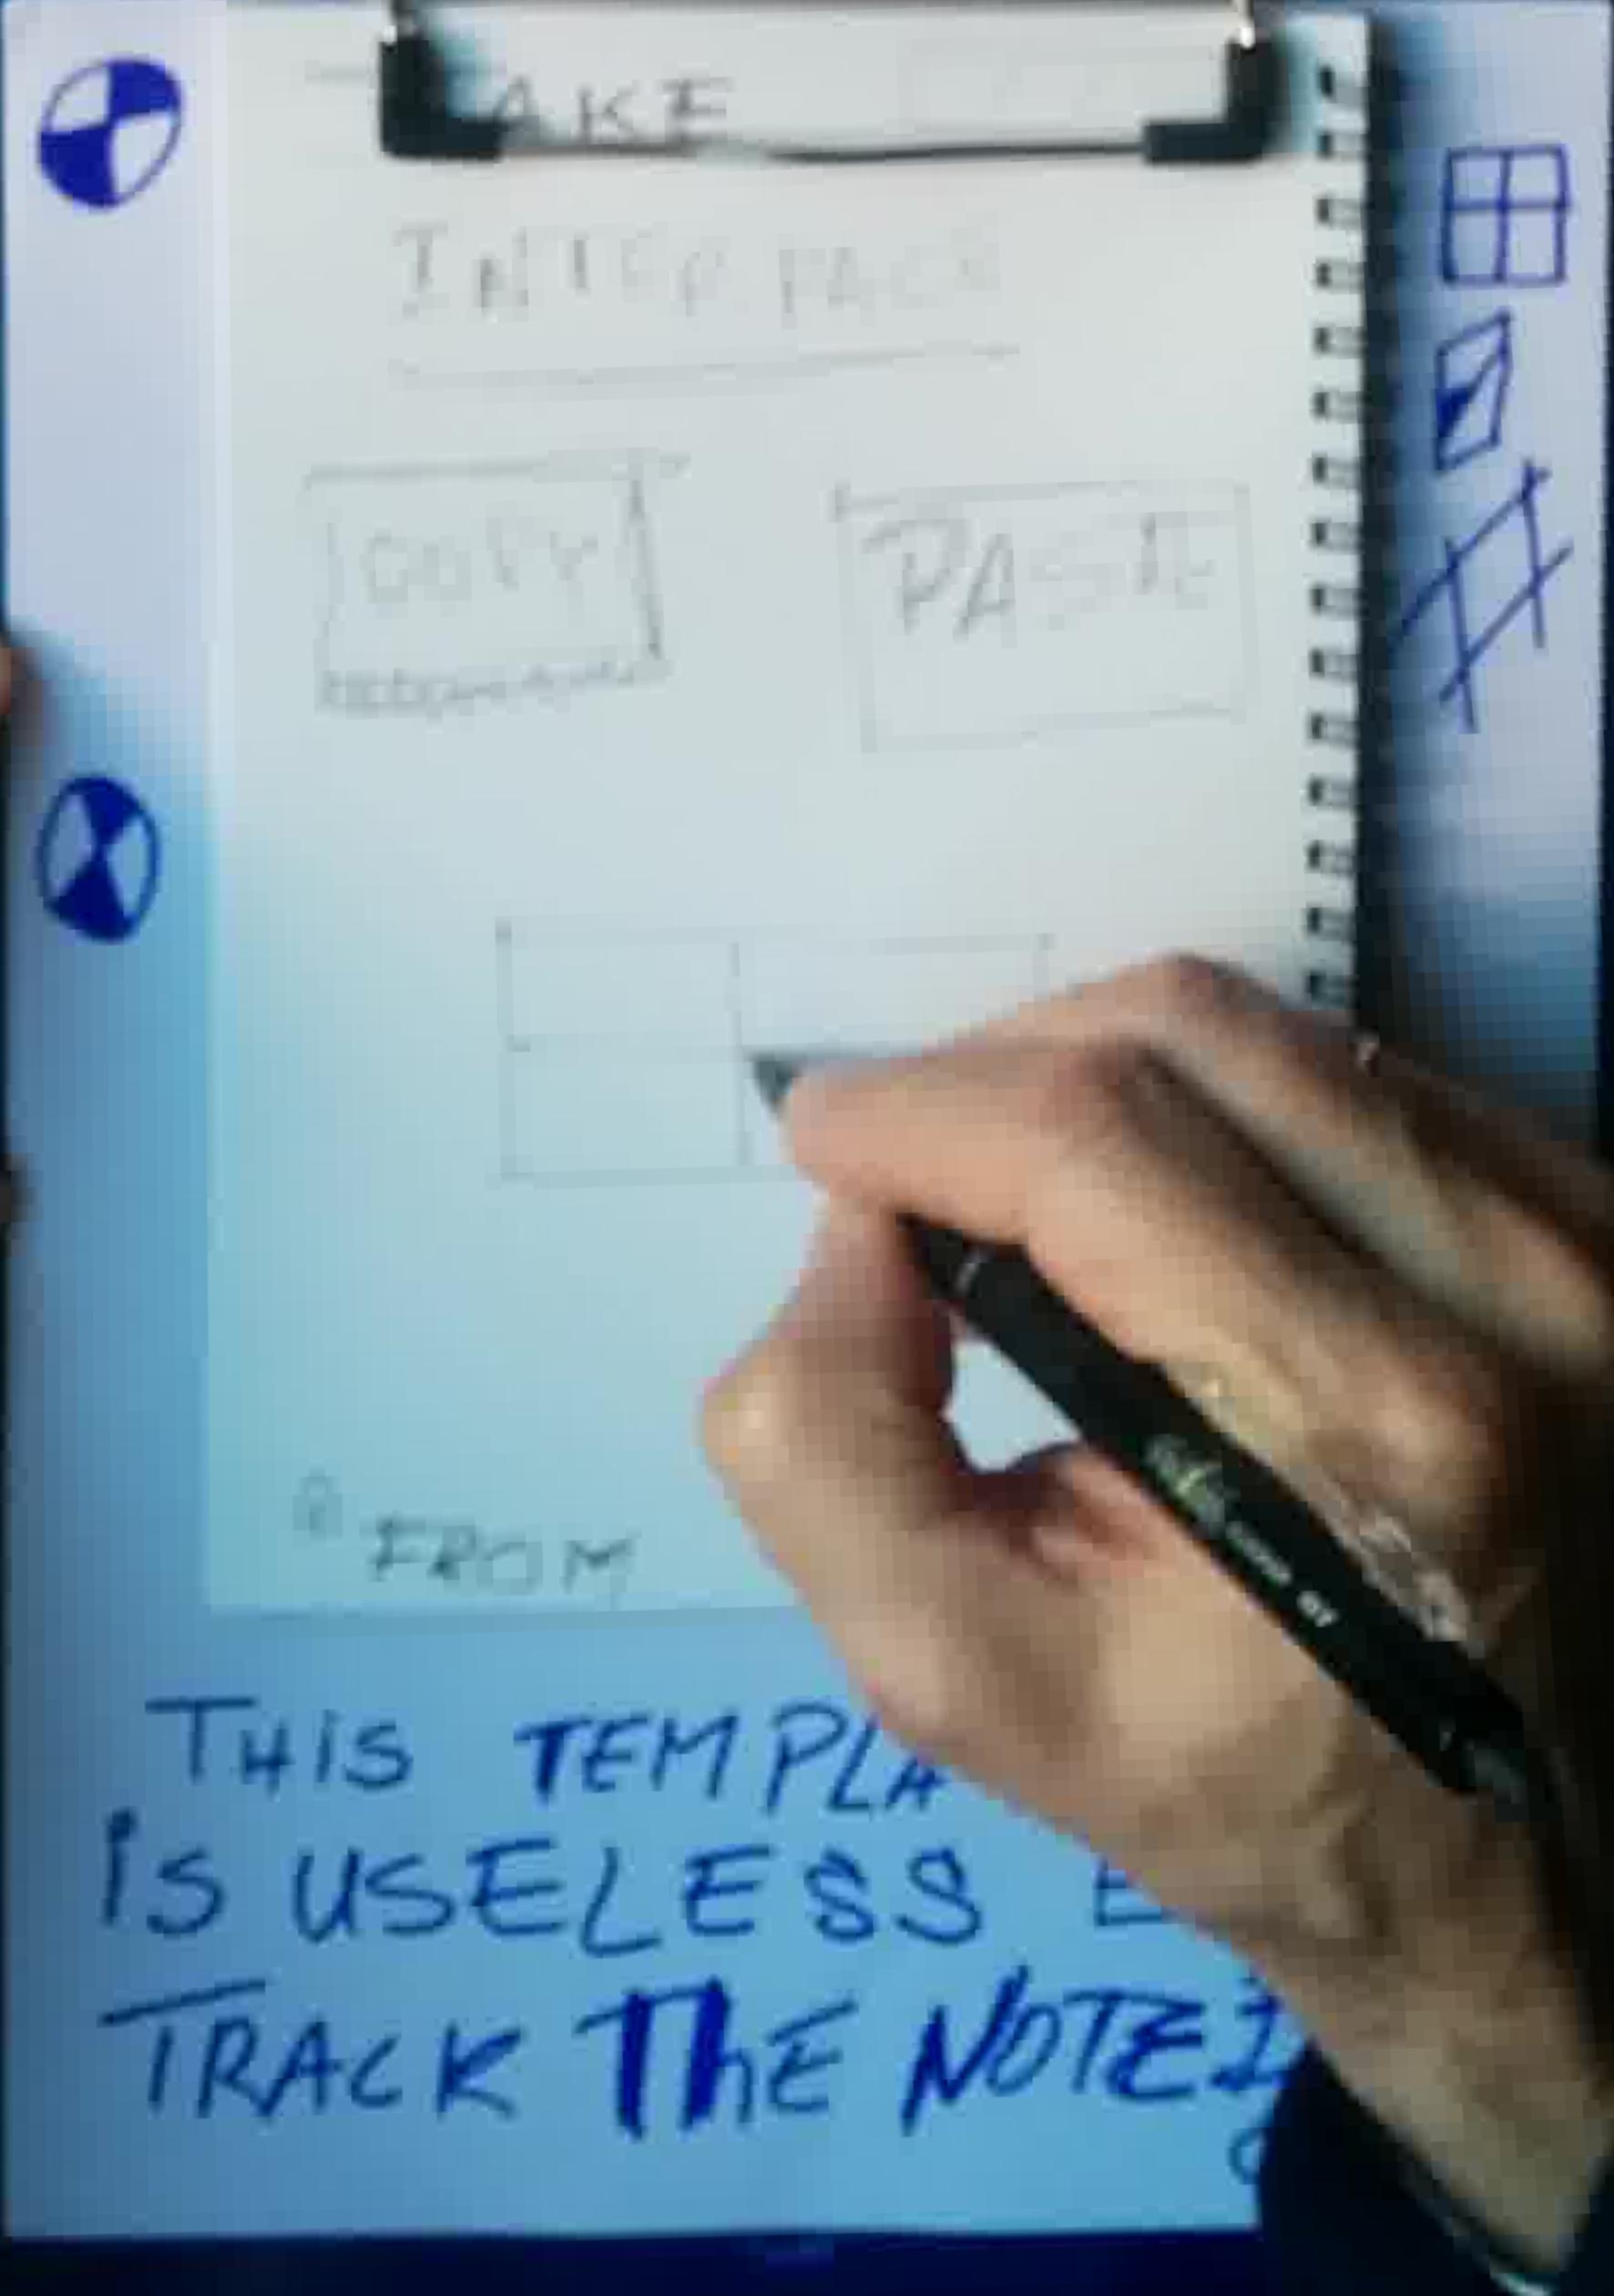 AKE
INTERFACE
COPY
PASTE
FROM
THiS TEMPLA
iS USELESS E
TRACK ThE NOTE